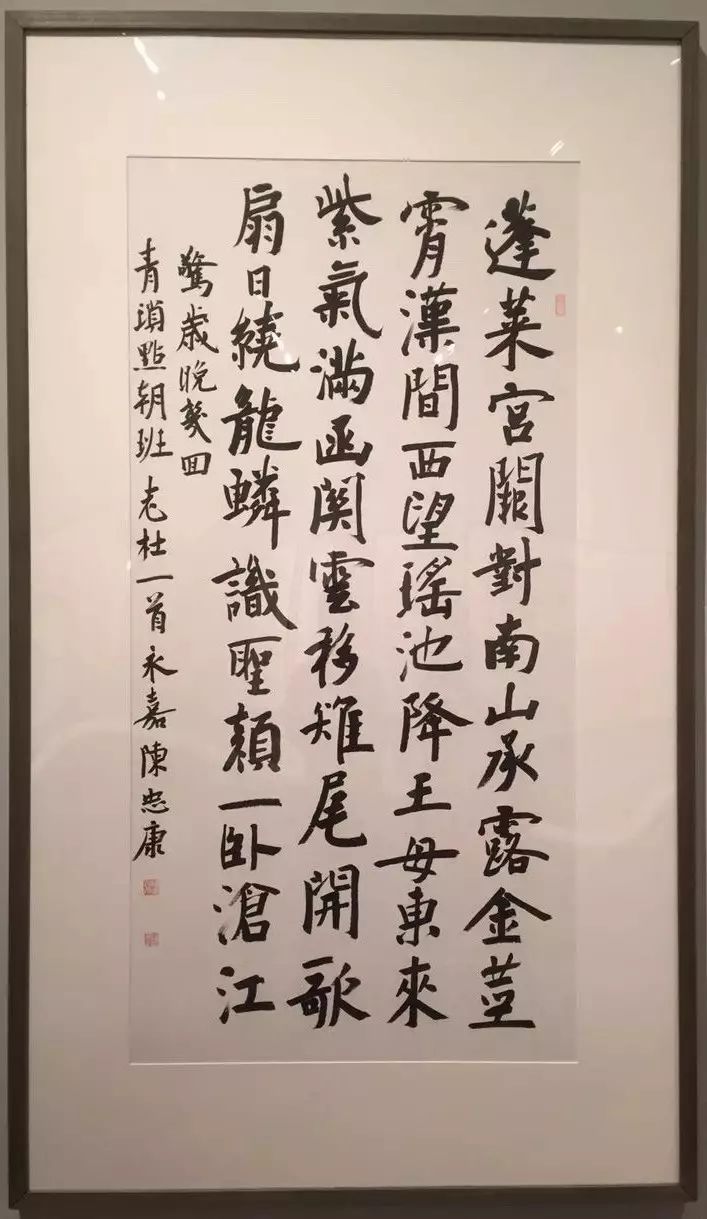 蓬萊宮闕對南山承露金莖
霄漢間西望瑤池降王母東來
紫氣滿函關雲移雉尾開歌
扇日繞龍鱗識聖顏一卧滄江
驚歲晚幾回
青瑣點朝班老杜一首永嘉陳忠康